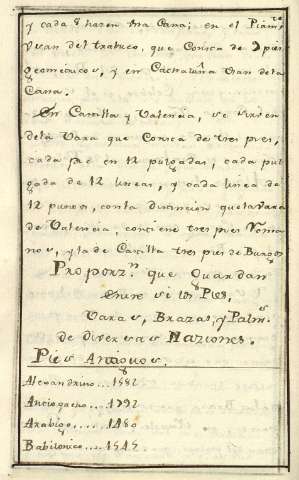 y cada 8 hazen una Cana; en el Piam.te
usan del trabuco, que Consta de 9 pies
geometricos, y en Cathaluña usan dela
Cana.
En Castilla y Valencia, se sirven
dela Vara que Consta de tres pies,
cada pie en 12 pulgadas, cada pul
gada de 12 lineas, y cada linea de
12 puntos, con la distincion que la vara
de Valencia, contiene tres pies Roma
nos, y la de Castilla tres pies de Burgos
Proporz.n que Guardan
entre si los Pies,
Varas, Brazas, y Palm.s
de diversas Naziones.
Pies Antiguos.
Alexandrino....1582
Antiogueno....1792
Arabigo....1480
Babilonico....1545